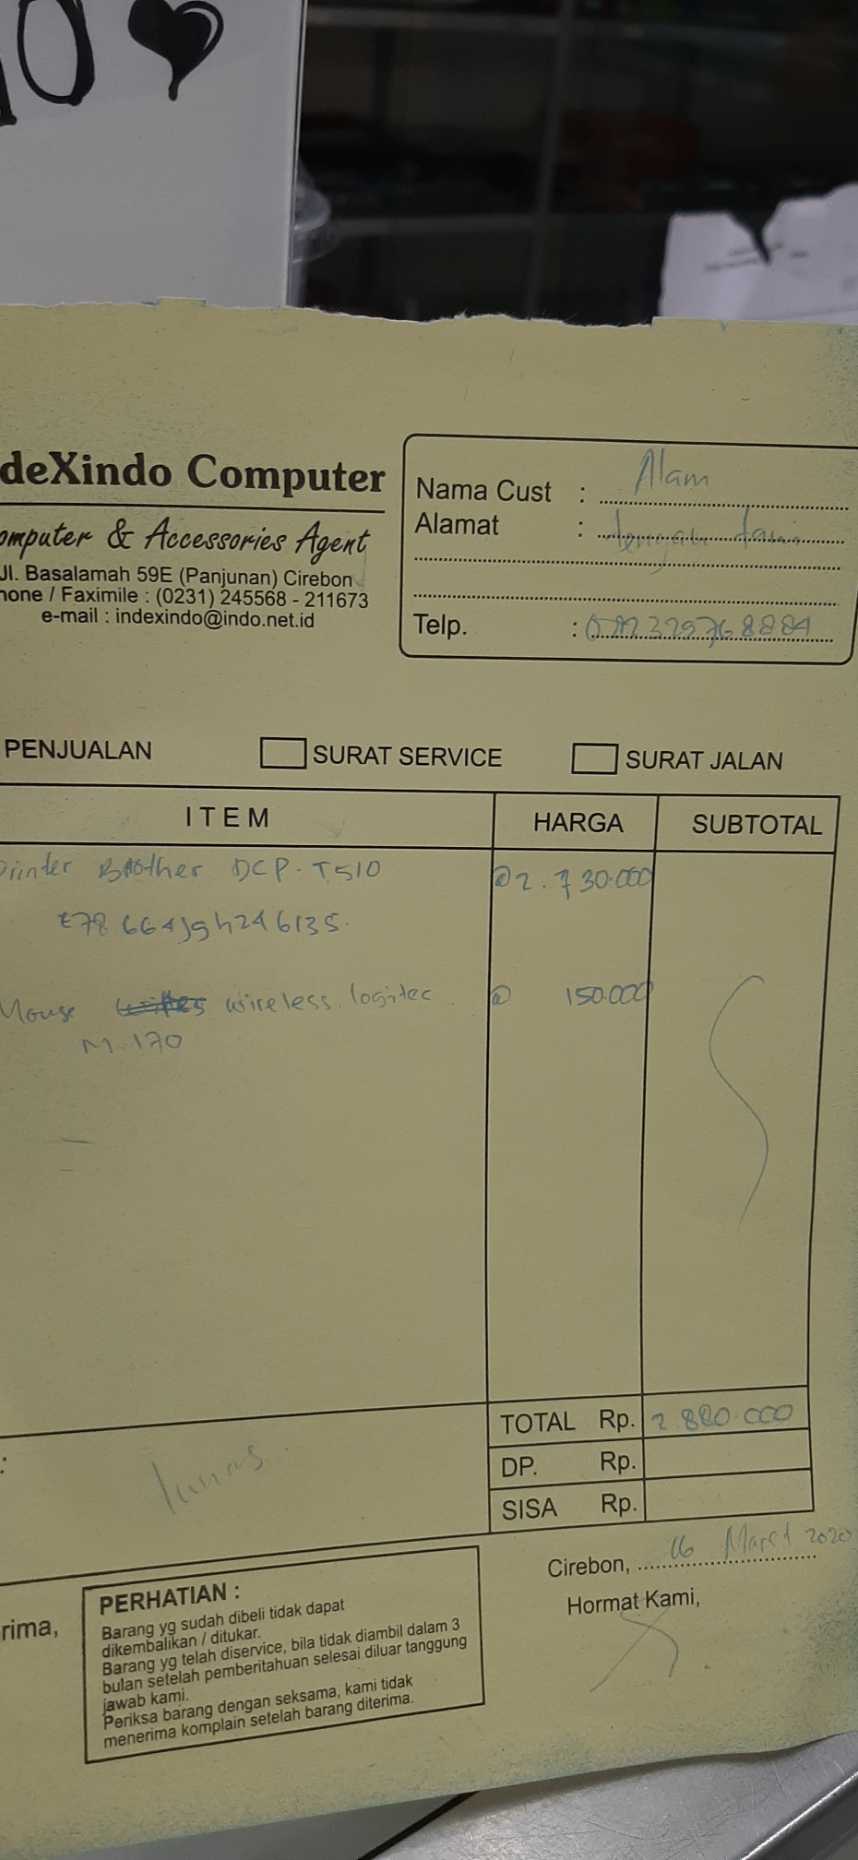 deXindo Computer
omputer & Accessories Agent
Jl. Basalamah 59E (Panjunan) Cirebon
hone / Faximile : (0231) 245568 - 211673
e-mail : indexindo@indo.net.id
Nama Cust : Alam
Alamat : dengan
Telp. :
PENJUALAN SURAT SERVICE SURAT JALAN
ITEM HARGA SUBTOTAL
printer Brother DCP-T510 @ 2.730.000
Mouse wireless logitec @ 150.000
M.170
TOTAL Rp. 2.880.000
DP. Rp.
SISA Rp.
:
lunas.
Cirebon, 16 Maret 2020
Hormat Kami,
rima,
PERHATIAN :
Barang yg sudah dibeli tidak dapat
dikembalikan / ditukar.
Barang yg telah diservice, bila tidak diambil dalam 3
bulan setelah pemberitahuan selesai diluar tanggung
jawab kami.
Periksa barang dengan seksama, kami tidak
menerima komplain setelah barang diterima.